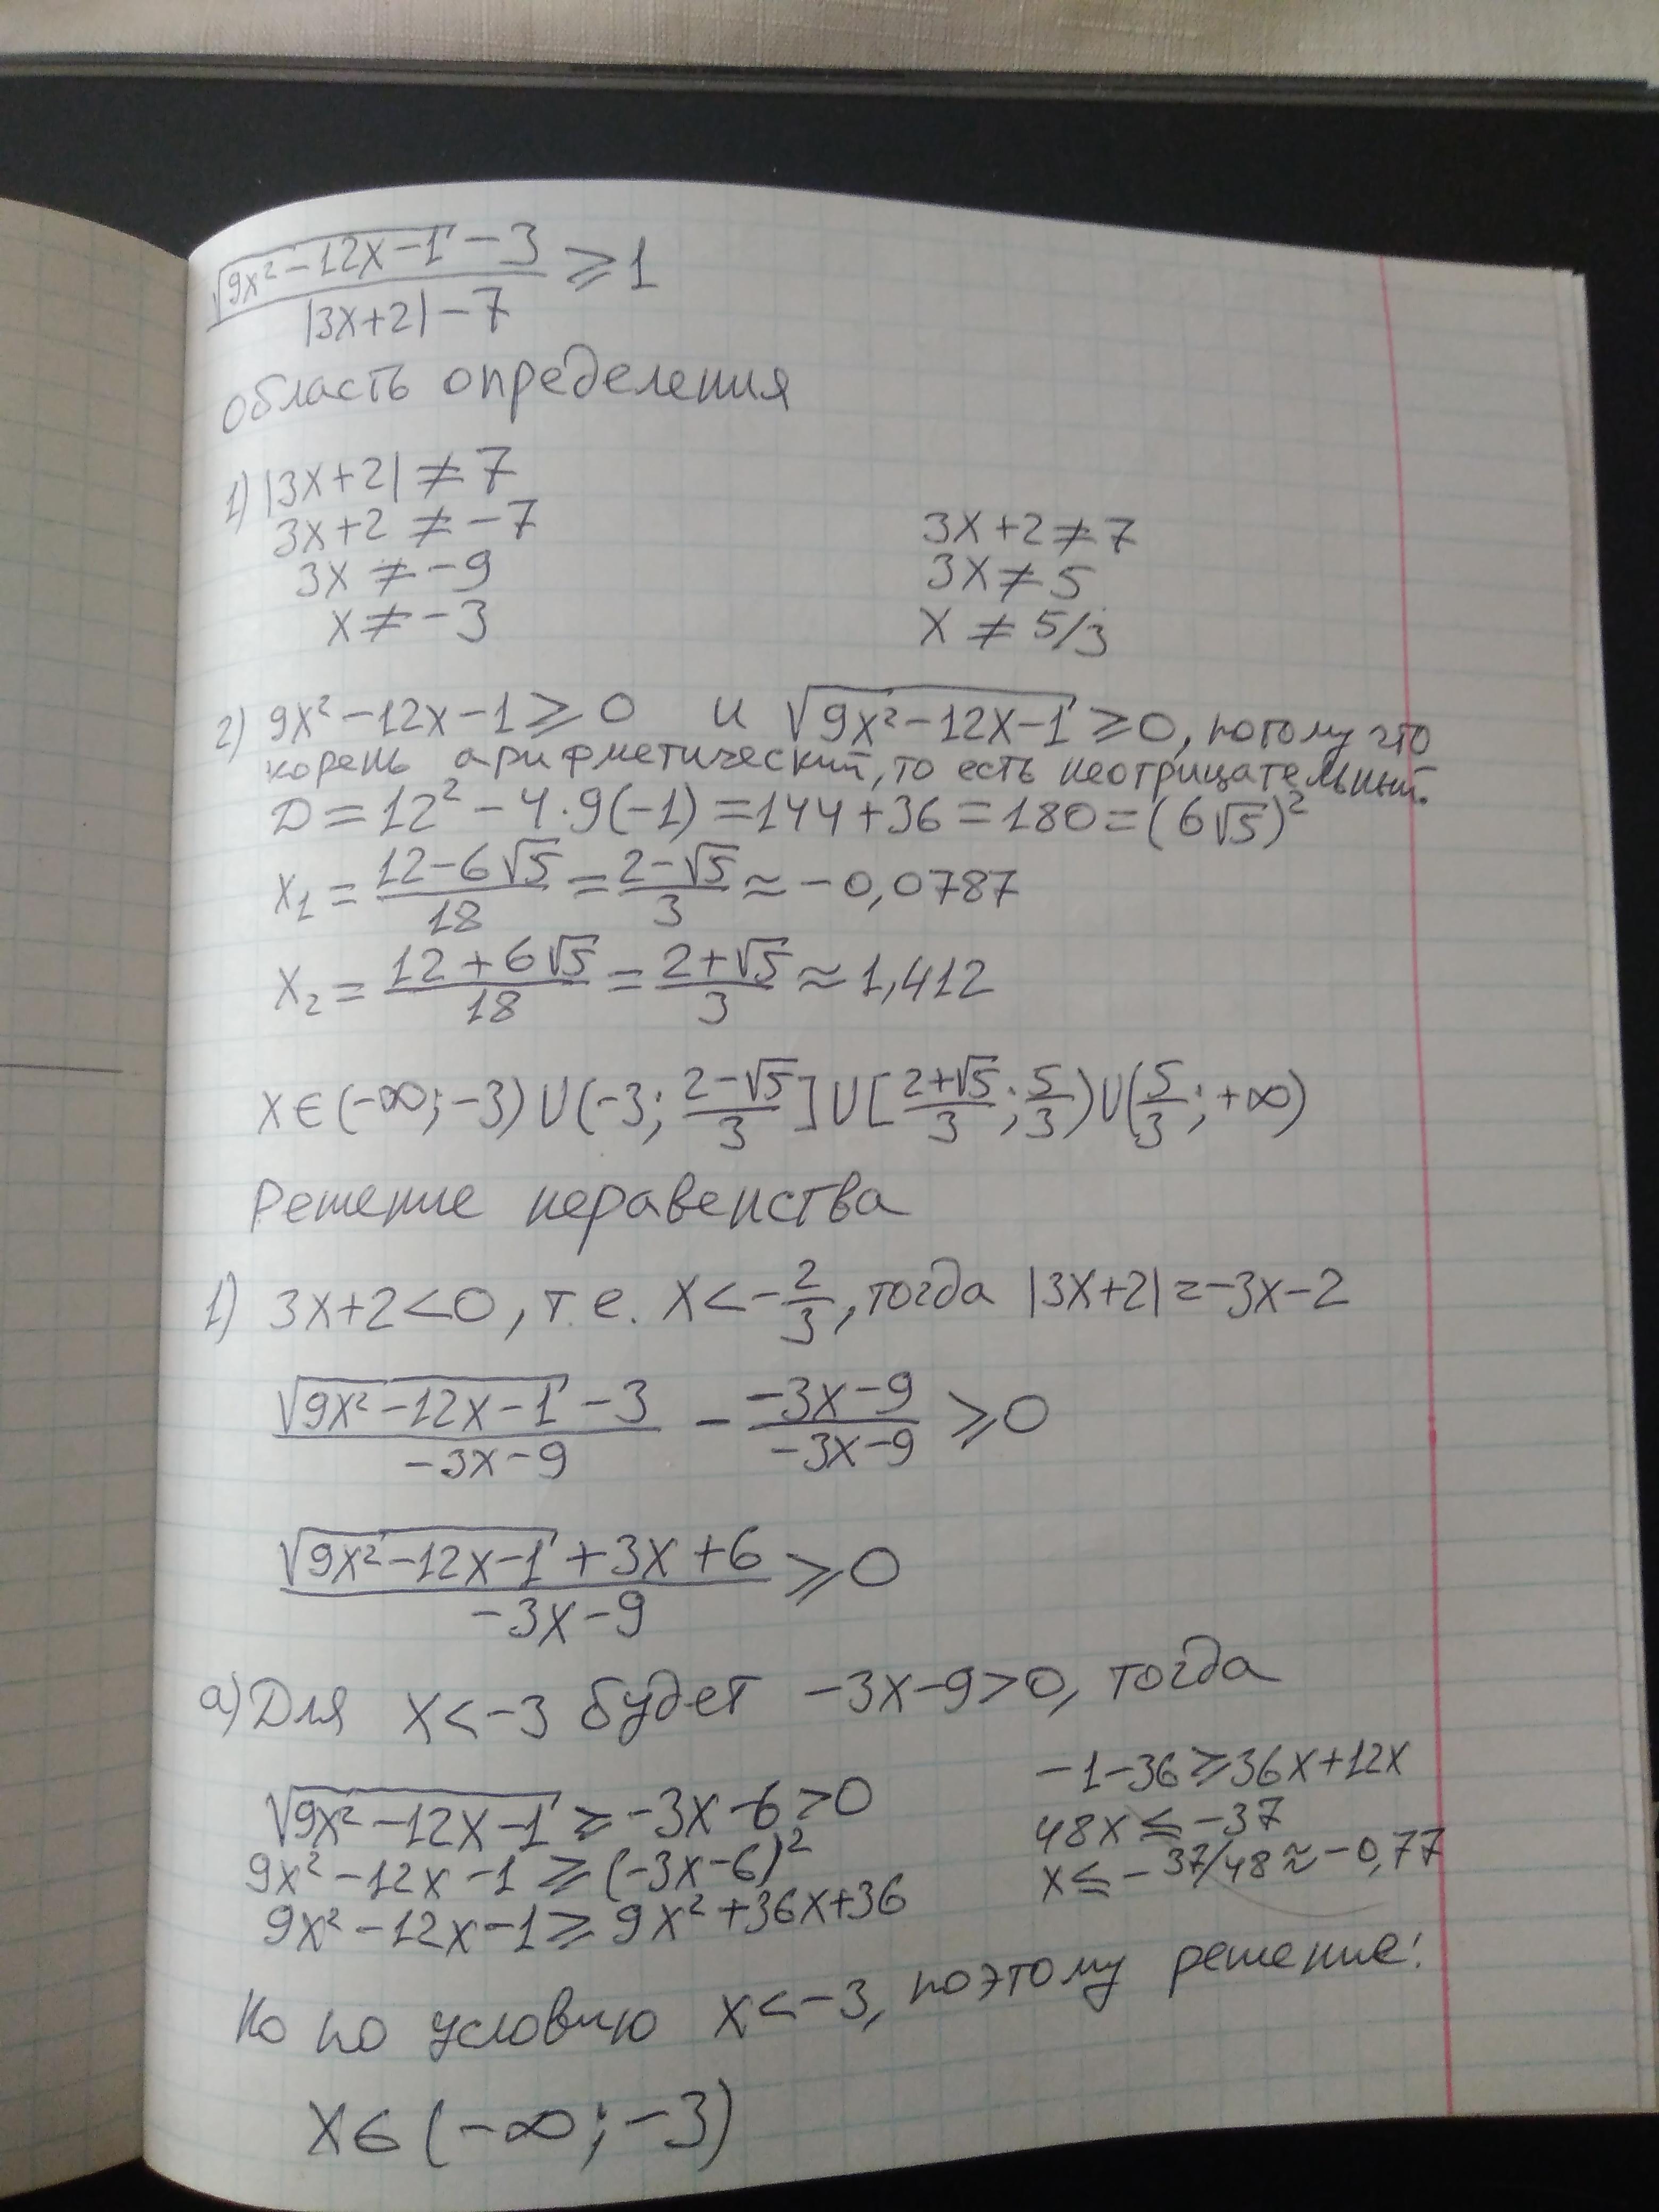 (√(9x²-12x-1) -3)/(|3x+2|-7) ⩾ 1
область определения
1) |3x+2| ≠ 7
3x+2 ≠ -7   3x+2 ≠ 7
3x ≠ -9   3x ≠ 5
x ≠ -3   x ≠ 5/3
2) 9x²-12x-1 ⩾ 0 и √(9x²-12x-1) ⩾ 0, потому что
корень арифметический, то есть неотрицательный.
D = 12² - 4·9(-1) = 144+36 = 180 = (6√5)²
x₁ = (12-6√5)/18 = (2-√5)/3 ≈ -0,0787
x₂ = (12+6√5)/18 = (2+√5)/3 ≈ 1,412
x∈(-∞; -3) U (-3; (2-√5)/3] U [(2+√5)/3; 5/3) U (5/3; +∞)
Решение неравенства
1) 3x+2<0, т.е. x<-2/3, тогда |3x+2| = -3x-2
(√(9x²-12x-1) -3)/(-3x-9) - (-3x-9)/(-3x-9) ⩾ 0
(√(9x²-12x-1) +3x+6)/(-3x-9) ⩾ 0
а) Для x<-3 будет -3x-9>0, тогда
√(9x²-12x-1) ⩾ -3x-6 > 0
9x²-12x-1 ⩾ (-3x-6)²
9x²-12x-1 ⩾ 9x²+36x+36
-1-36 ⩾ 36x+12x
48x ⩽ -37
x ⩽ -37/48 ≈ -0,77
Но по условию x<-3, поэтому решение:
x∈(-∞; -3)